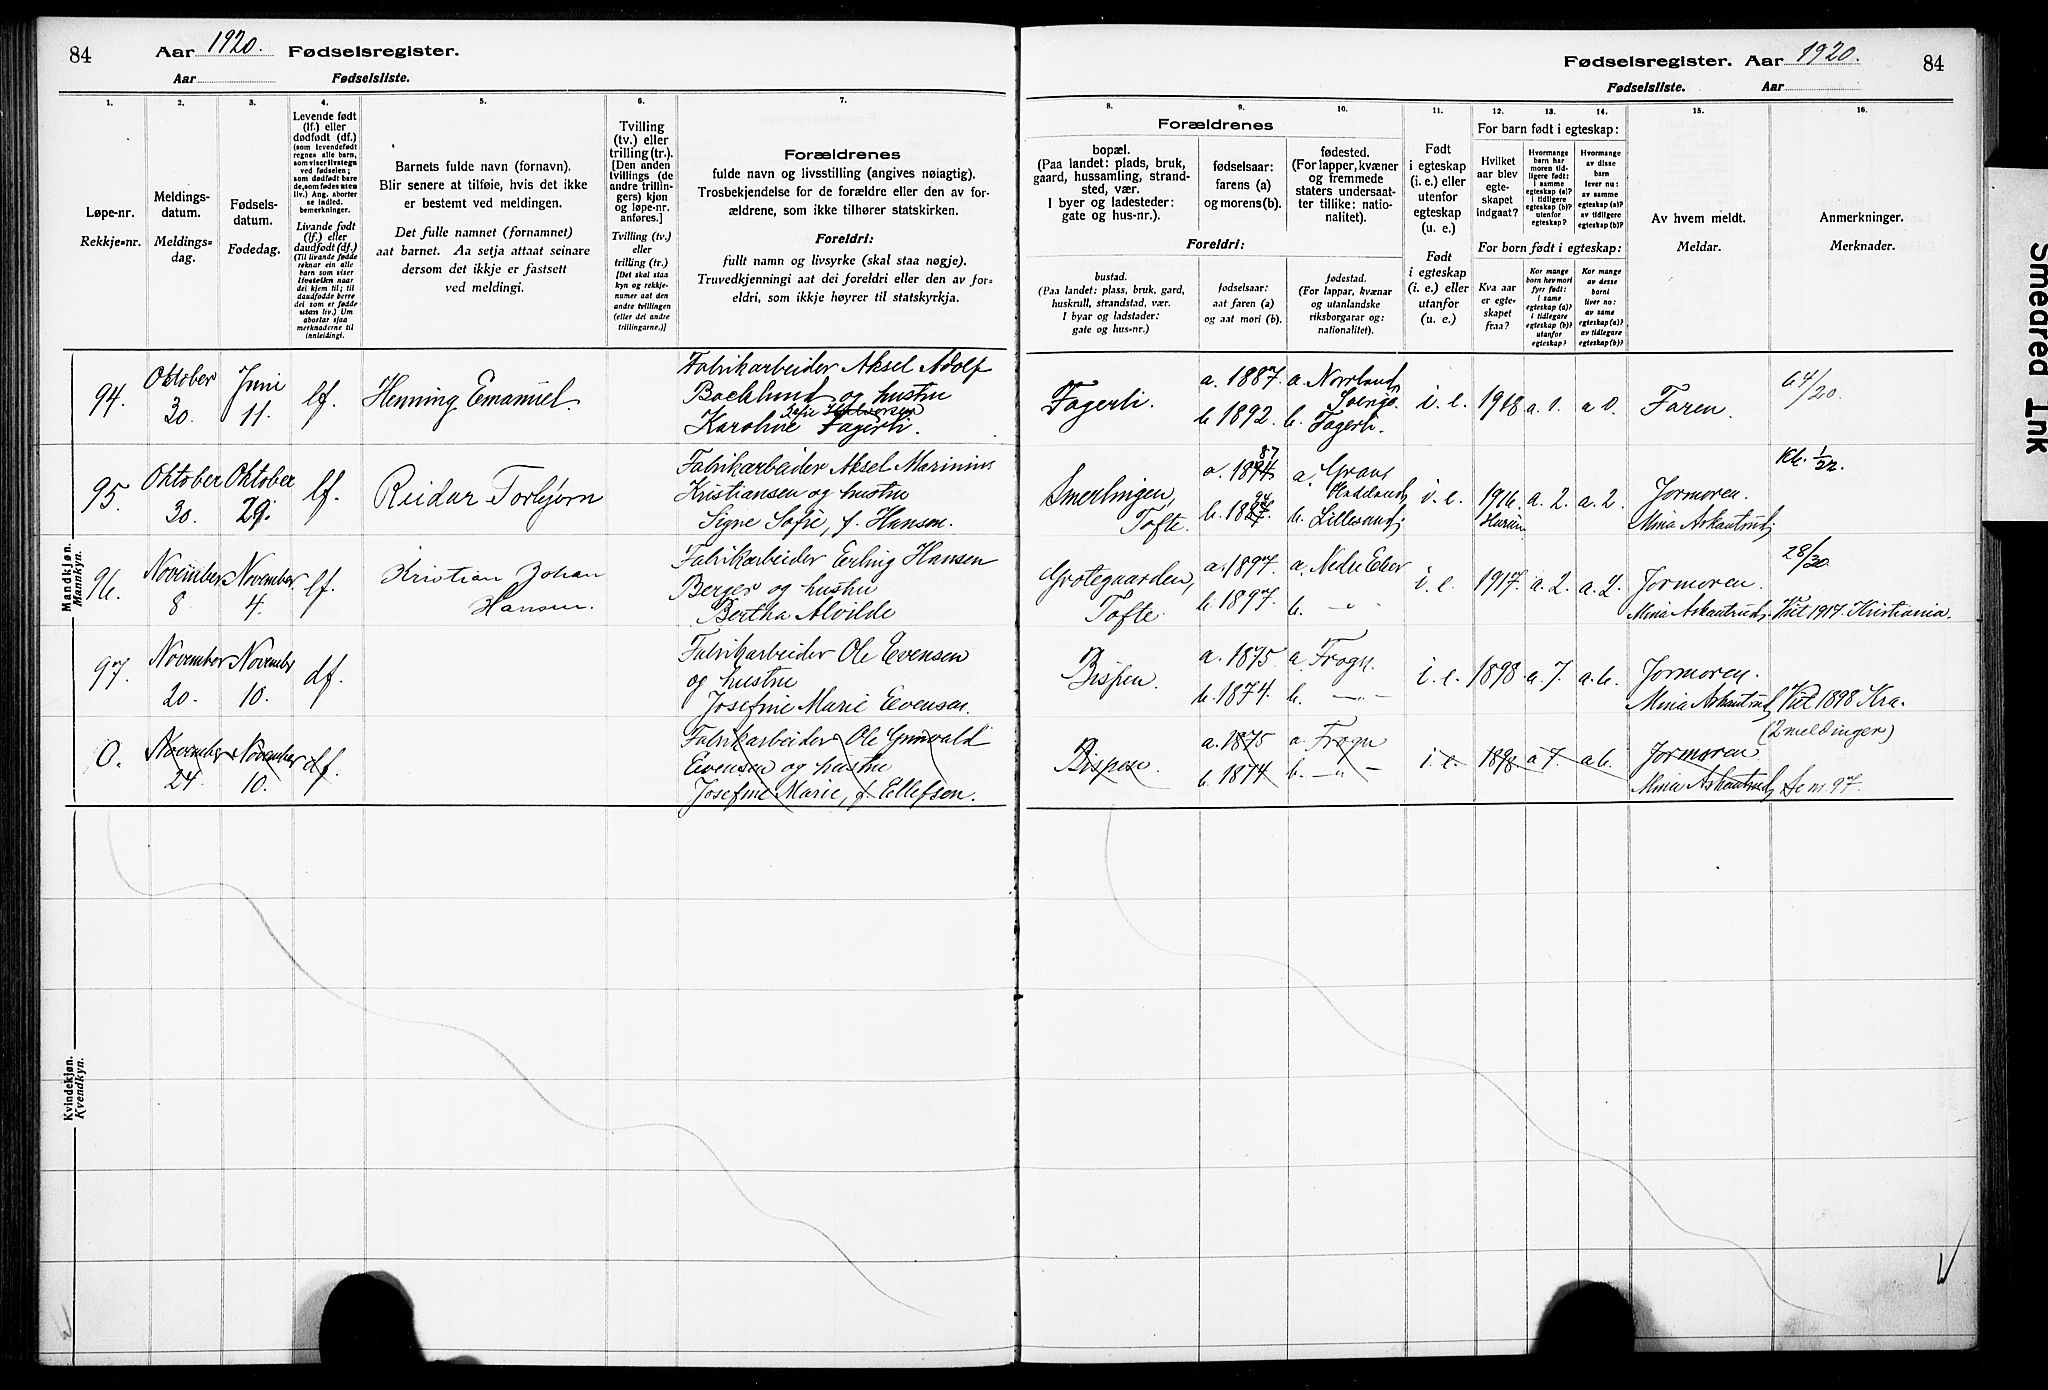 84
Aar 1920. Fødselsregister.
Aar Fødselsliste.
Fødselsregister. Aar 1920.
84
Fødselsliste. Aar
1.
Løpe-nr.
Rekkje-nr.
2.
Meldings-
datum.
Meldings-
dag.
3.
Fødsels-
datum.
Fødedag.
4.
Levende født
(lf.) eller
dødfødt (df.)
(som levendefødt
regnes alle barn,
som viser livstegn
ved fødselen;
som dødfødt bare
de, som fødes uten
liv.) Ang. aborter
se indled.
bemerkninger.
Livande født
(lf.) eller
daudfødt (df.)
(Til livande fødde
reknar ein alle
born som viser
livsteikn naar
dei kjem til; til
daudfødde berre
dei som er fødde
utan liv.) Um
abortar sjaa
merknaderne til
innleidingi.
5.
Barnets fulde navn (fornavn).
Blir senere at tilføie, hvis det ikke
er bestemt ved meldingen.
Det fulle namnet (fornamnet)
aat barnet. Aa setja attaat seinare
dersom det ikkje er fastsett
ved meldingi.
6.
Tvilling
(tv.) eller
trilling (tr.).
[Den anden
tvillings (de
andre trillin-
gers) kjøn
og løpe-nr.
anføres.]
Tvilling (tv.)
eller
trilling (tr.)
[Det skal staa
kyn og rekkje-
numer aat den
andre tvillingen
(eller dei andre
trillingarne.)]
7.
Forældrenes
fulde navn og livsstilling (angives nøiagtig).
Trosbekjendelse for de forældre eller den av for-
ældrene, som ikke tilhører statskirken.
Foreldri:
fullt namn og livsyrke (skal staa nøgje).
Truvedkjenningi aat dei foreldri eller den av for-
eldri, som ikkje høyrer til statskyrkja.
Forældrenes
8.
bopæl.
(Paa landet: plads, bruk,
gaard, hussamling, strand-
sted, vær.
I byer og ladesteder:
gate og hus-nr.).
9.
fødselsaar:
farens (a)
og morens (b).
10.
fødested.
(For lapper, kvæner
og fremmede
staters undersaat-
ter tillike: natio-
nalitet).
Foreldri:
bustad.
(Paa landet: plass, bruk, gard,
huskrull, strandstad, vær.
I byar og ladstader:
gate og hus-nr.)
fødselsaar:
aat faren (a)
og aat mori (b).
fødestad.
(For lappar, kvænar
og utanlandske
riksborgarar og:
nationalitet).
11.
Født
i egteskap
(i. e.) eller
utenfor
egteskap
(u. e.)
Født
i egteskap
(i. e.) eller
utanfor
(u. e.).
12.
13.
14.
For barn født i egteskap:
Hvilket
aar blev
egte-
skapet
indgaat?
Hvormange
barn har
moren tid-
ligere født:
i samme
egteskap (a)?
i tidligere
egteskap (b)?
utenfor
egteskap?
Hvormange
av disse
barn
lever nu:
av samme
egteskap (a)?
av tidligere
egteskap (b)?
For born født i egteskap:
Kva aar
er egte-
skapet
fraa?
Kor mange
born hev mori
fyrr født:
i same
egteskap (a)?
i tidlegare
egteskap (b)?
utanfor
egteskap?
Kor mange
av desse
borni
liver no:
av same
egteskap (a)?
av tidlegare
egteskap (b)?
15.
Av hvem meldt.
Meldar.
16.
Anmerkninger.
Merknader.
Mandkjøn.
Mannkyn.
94. Oktober 30. Juni 11. lf. Henning Emanuel.
Fabrikarbeider Aksel Adolf
Backlund og hustru
Karoline Fagerli.
Fagerli. a. 1887. a. Norrland, Sverige.
b. 1892. b. Fagerli. i. e. 1918 a. 0. a 0. Faren. 64/20.
95. Oktober 30. Oktober 29. lf. Reidar Torbjørn
Fabrikarbeider Aksel Marinius
Kristiansen og hustru
Signe Sofie, f. Hansen.
Smerlingen, Tofte. a. 1894 87 a. Grans Hadeland
b. 1887. 94 b. Lillesand; i. e. 1916. Hurum a. 2. a. 2. Jormoren.
Mina Askautrud; kb. 1/22.
96. November 8 November 4. lf. Kristian Johan
Hansen.
Fabrikarbeider Erling Hansen
Berger og hustru
Bertha Alvilde
Grotegaarden, Tofte. a. 1897. a. Nedre Eker
b. 1897. b. - " - i. e. 1917. a. 2. a. 2. Jormoren.
Mina Askautrud; 28/20. Viet 1917. Kristiania.
97. November 20. Novembr 10. df.
Fabrikarbeider Ole Evensen
og hustru
Josefine Marie Evensen.
Bispen. a. 1875 a. Frogn.
b. 1874. b. - " - i. e. 1898 a. 7. a. 6. Jormoren.
Mina Askautrud; Viet 1898 Kra.
(2 meldinger)
0. November 24. November 10. df.
Fabrikarbeider Ole Grinvald
Evensen og hustru
Josefine Marie, f. Ellefsen.
Bispen. a. 1875 a. Frogn
b. 1874 b. - " - i. e. 1898 a 7. a 6. Jormoren
Mina Askautrud; Se nr. 97.
Kvindekjøn.
Kvendkyn.
Smeared Ink